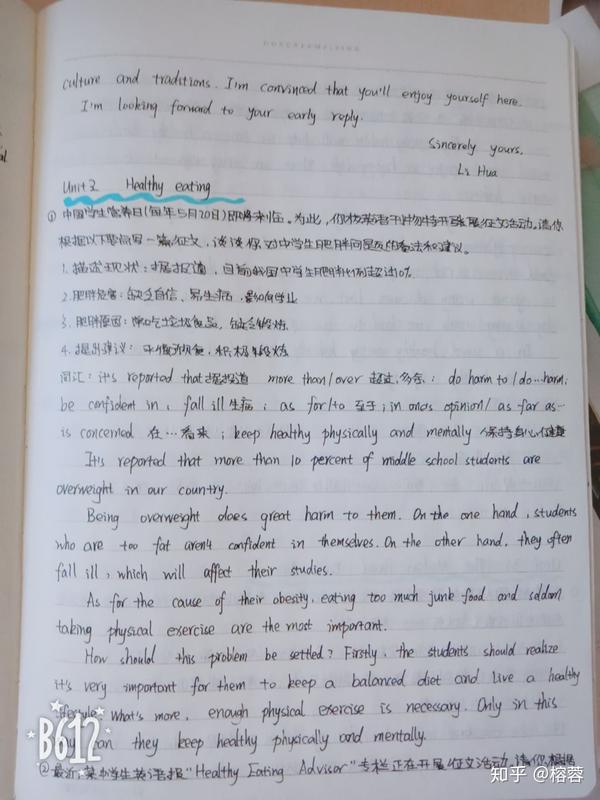 culture and traditions. I'm convinced that you'll enjoy yourself here.
I'm looking forward to your early reply.
Sincerely yours,
Li Hua
Unit 2 Healthy eating
①中国学生营养日(每年5月20日)即将来临。为此,你校英语特开展征文活动。请你
根据以下要点写一篇征文,谈谈你对中学生肥胖问题的看法和建议。
1. 描述现状:据报道,目前我国中学生肥胖比例超过10%
2. 肥胖危害:缺乏自信、易生病,影响学业
3. 肥胖原因:常吃垃圾食品,缺乏锻炼
4. 提出建议:平衡饮食,积极锻炼
词汇:it's reported that 据报道 more than/over 超过,多余; do harm to / do...harm;
be confident in; fall ill 生病; as for/to 至于; in one's opinion/ as far as...
is concerned 在…看来; keep healthy physically and mentally 保持身心健康
It's reported that more than 10 percent of middle school students are
overweight in our country.
Being overweight does great harm to them. On the one hand, students
who are too fat aren't confident in themselves. On the other hand, they often
fall ill, which will affect their studies.
As for the cause of their obesity, eating too much junk food and seldom
taking physical exercise are the most important.
How should this problem be settled? Firstly, the students should realize
it's very important for them to keep a balanced diet and live a healthy
lifestyle. What's more, enough physical exercise is necessary. Only in this
way can they keep healthy physically and mentally.
②最近,某中学生英语报"Healthy Eating Advisor"专栏正在开展征文活动,请你根据
B612
知乎 @榕蓉